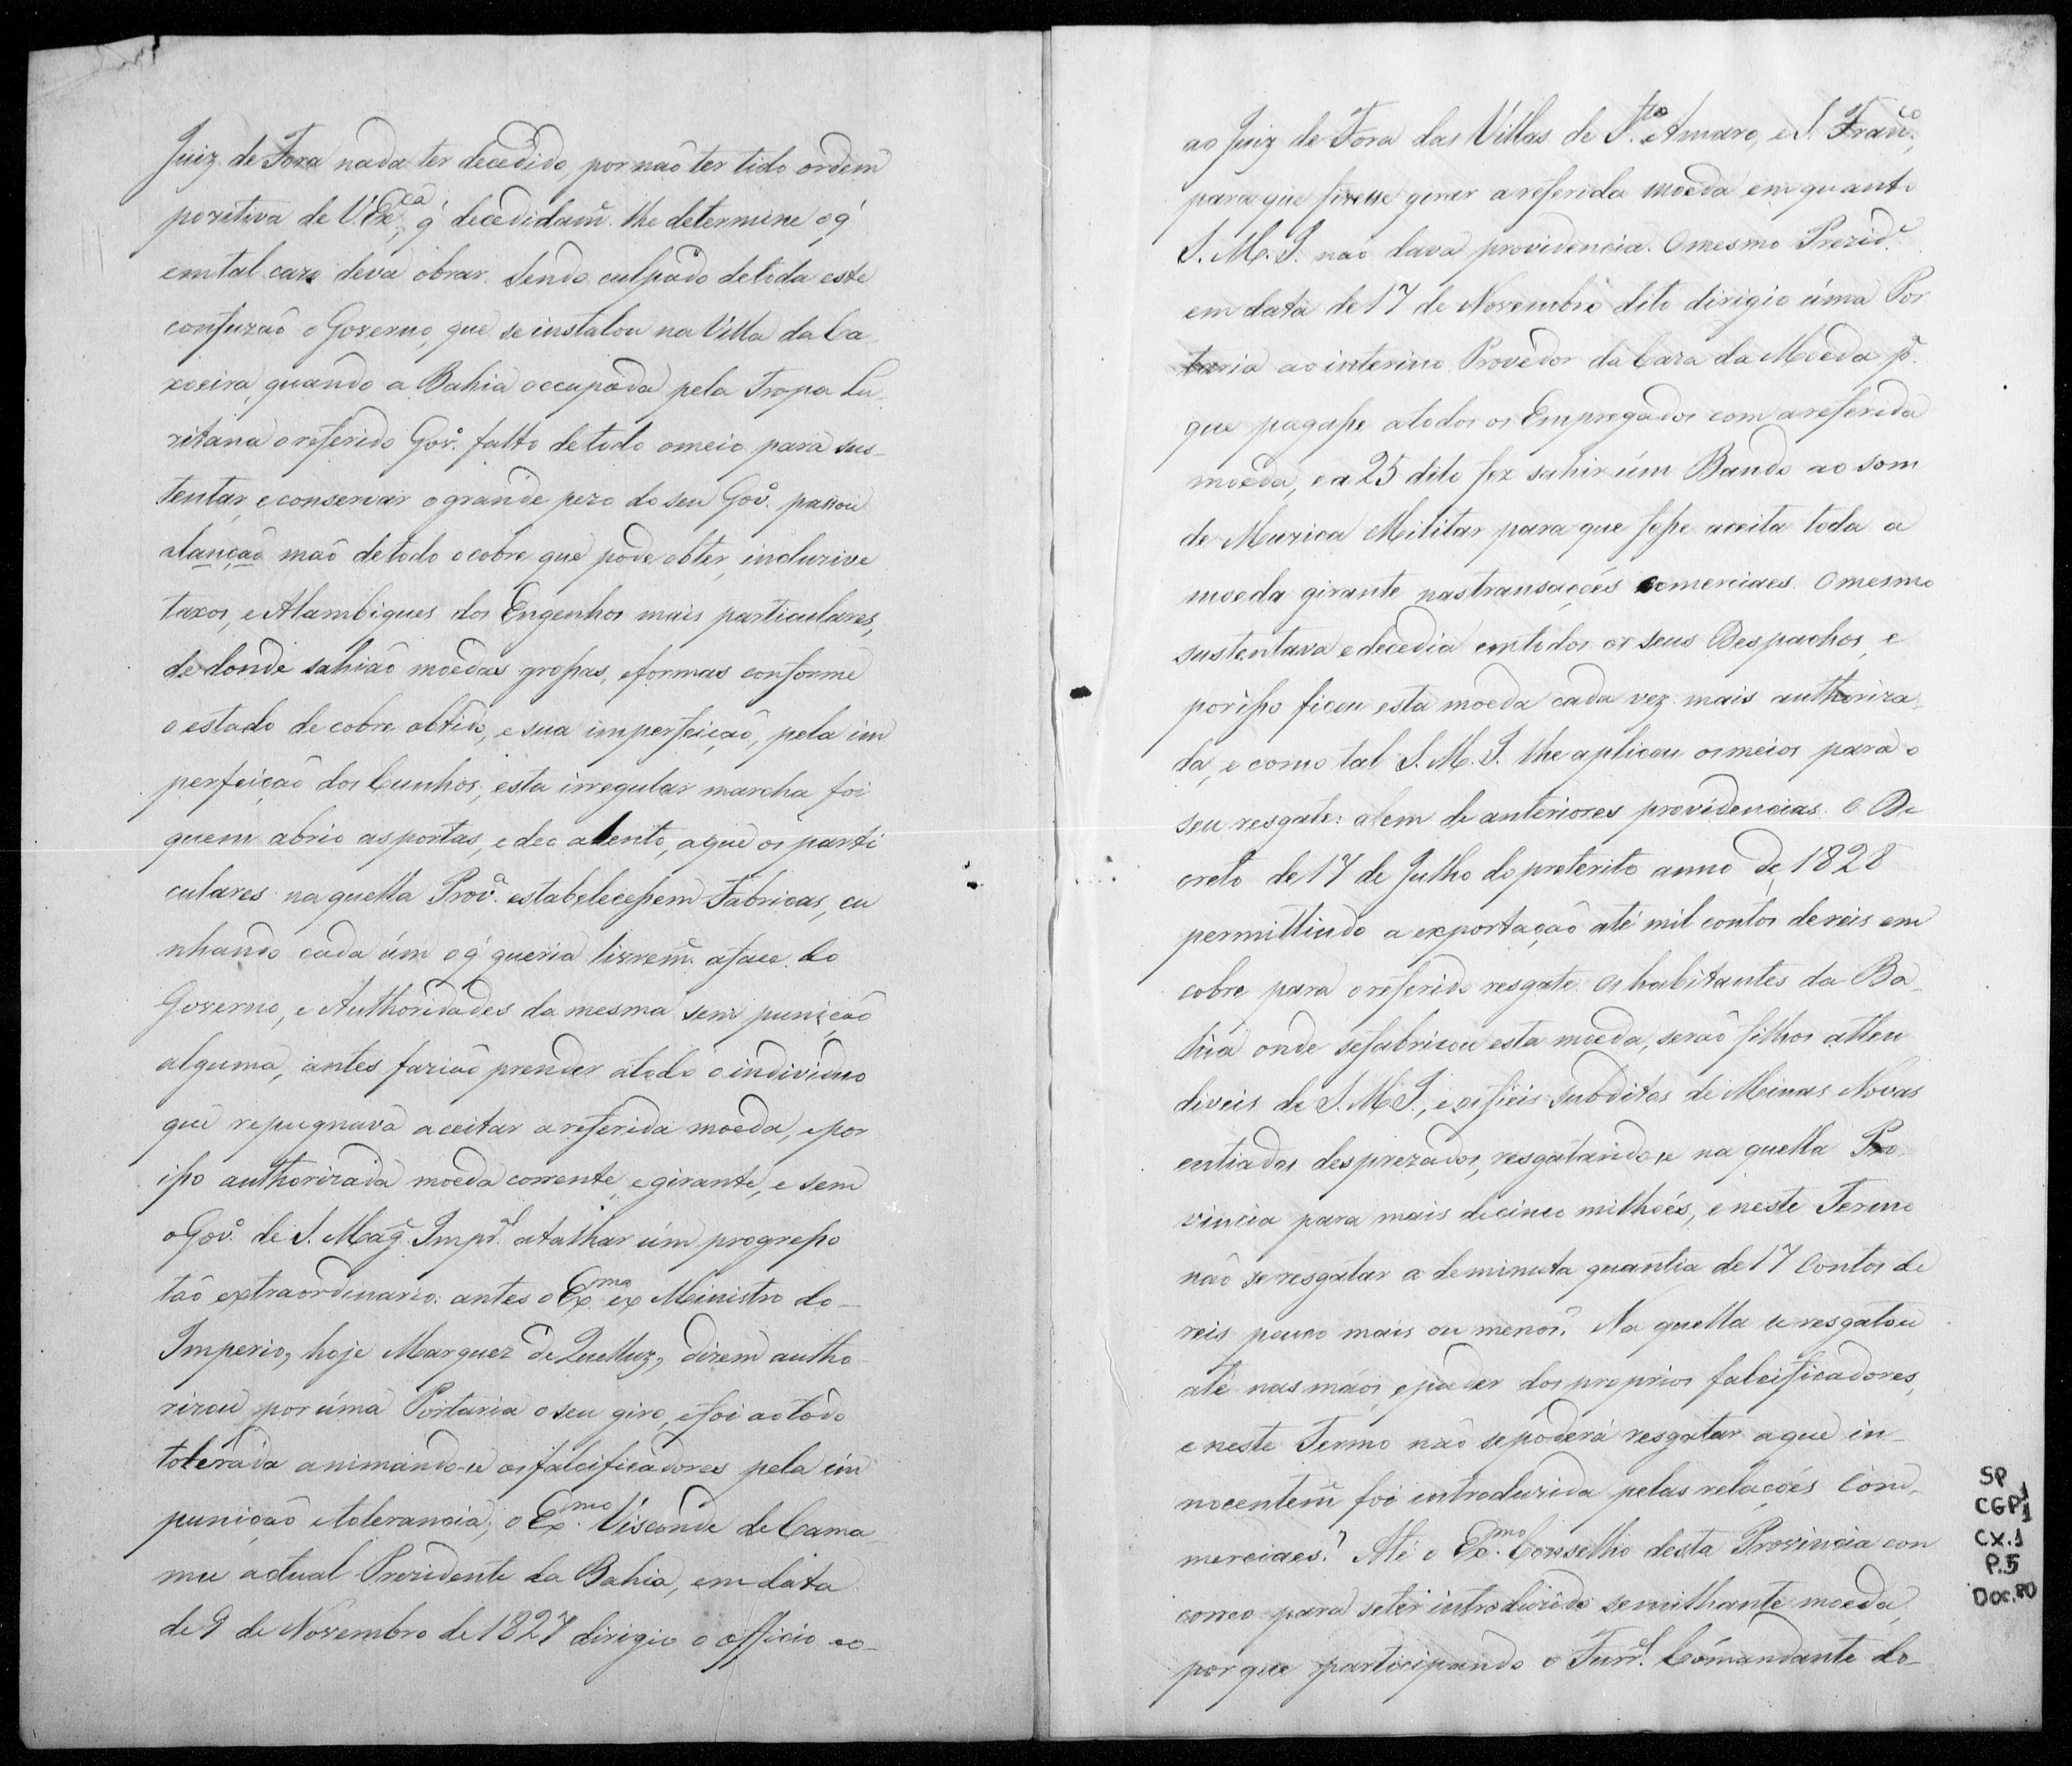 Juiz de Fora nada ter decedido, por naõ ter tido ordem
pozitiva de V. Exᶜᵃ, q̃ decedidamᵉ. lhe determine o q̃
em tal cazo deva obrar. Sendo culpado de toda esta
confuzaõ o Governo, que se instalou na Villa da Ca
xoeira, quando a Bahia occupada pela Tropa Lu_
zitana o referido Govº. falto de todo o meio para sus_
tentar, e conservar o grande pezo do seu Govº. passou
a lançaõ maõ de todo o cobre que pode obter, incluzive
taxos, e Alambiques dos Engenhos mais particulares,
de donde sahiaõ moedas grossas, e formas conforme
o estado de cobre obtido, e sua imperfeiçaõ, pela im
perfeiçaõ dos Cunhos, esta irregular marcha foi
quem abrio as portas, e deo alento, a que os parti
culares na quella Provª. estabelecessem Fabricas, cu
nhando cada úm o q̃ queria livremᵉ. a face do
Governo, e Authoridades da mesma sem puniçaõ
alguma, antes faziaõ prender a todo o individuo
que repugnava aceitar a referida moeda, e por
isso authorizada moeda corrente, e girante, e sem
o Govº. de S. Magᵉ. Impᵃˡ. atalhar úm progresso
taõ extraordinario: antes o Exᵐᵒ. ex Ministro do_
Imperio, hoje Marquez de Quelluz, dizem autho_
rizou por úma Portaria o seu giro, e foi ao todo
tolerada animando-se os falcificadores pela im
puniçaõ e tolerancia; o Exᵐᵒ. Visconde de Cama_
mu actual Prezidente da Bahia, em data
de 9 de Novembro de 1827 dirigio o officio ao_
ao Juiz de Fora das Villas de Sᵗᵒ. Amaro, e S. Francᶜᵒ.,
para que fizesse girar a referida moeda em quanto
S. M. I. naõ dava providencia. O mesmo Prezidᵉ.
em data de 17 de Novembro dito dirigio úma Por
taria ao interino Provedor da Caza da Moeda pª.
que pagasse a todos os Empregados com a referida
moeda, e a 25 dito fez sahir úm Bando ao som
de Muzica Militar para que fosse aceita toda a
moeda girante nas transacçoés comerciaes. O mesmo
sustentava e decedia em todos os seus Despachos, e
por isso ficou esta moeda cada vez mais authoriza_
da, e como tal S. M. I. lhe aplicou os meios para o
seu resgate: alem de anteriores providencias. O De
creto de 17 de Julho do preterito anno de 1828
permittindo a exportaçaõ até mil contos de reis em
cobre para o referido resgate. Os habitantes da Ba_
hia onde se fabricou esta moeda, seraõ filhos atten
diveis de S. M. I., e os fieis subditos de Minas Novas
entiados desprezados, resgatando-se na quella Pro_
vincia para mais de cinco milhoés, e neste Termo
naõ se resgatar a deminuta quantia de 17 Contos de
reis pouco mais ou menos? Na quella se resgatou
até nas máos, e puder dos proprios falcificadores,
e neste Termo naõ se poderá resgatar a que in_
nocentemᵉ. foi introduzida pelas relaçoés Com_
merciaes? Até o Exᵐᵒ. Conselho desta Provincia con
correo para se ter introduzido semilhante moeda,
por que participando o Furrᵉˡ. Cómandante do_
SP
CGP1
CX.1
P.5
Doc.80